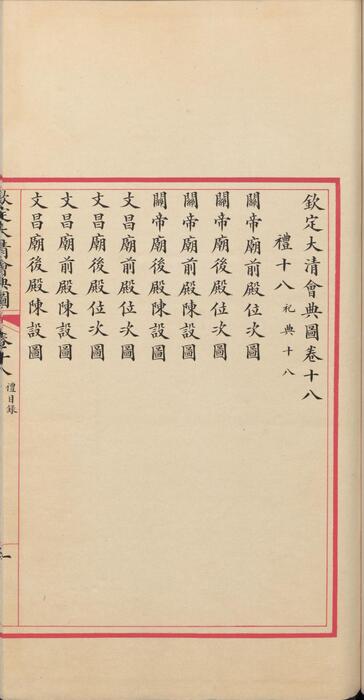 欽定大清會典圖卷十八
禮十八 礼典十八
關帝廟前殿位次圖
關帝廟後殿位次圖
關帝廟前殿陳設圖
關帝廟後殿陳設圖
文昌廟前殿位次圖
文昌廟後殿位次圖
文昌廟前殿陳設圖
文昌廟後殿陳設圖
欽定大清會典圖 卷十八 禮目錄 一